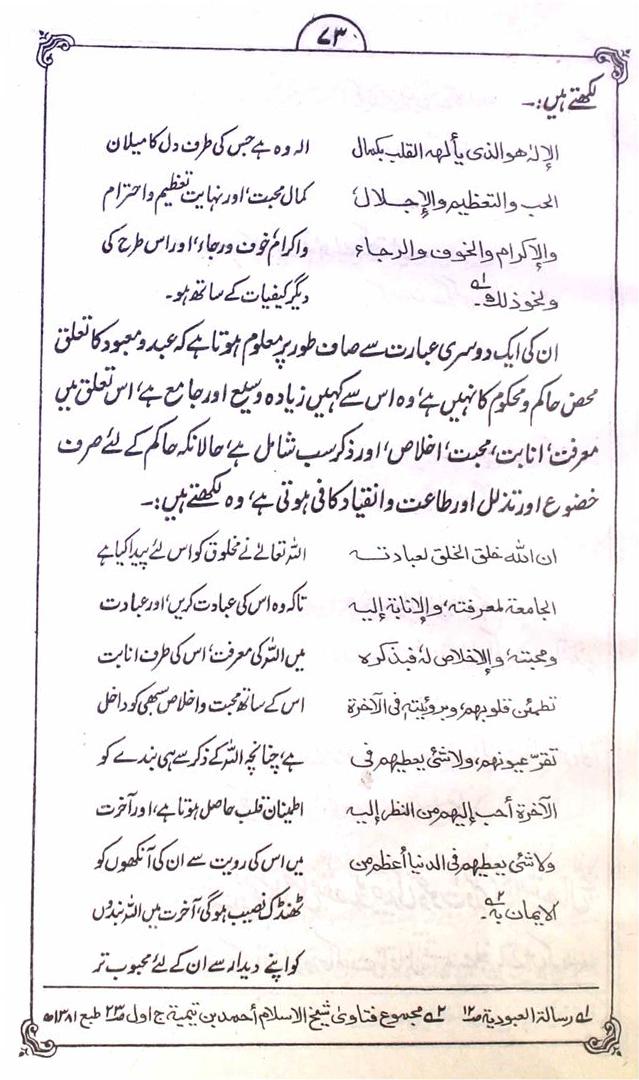 ۷۳
لکھتے ہیں:۔
الإلٰہ ھو الذی یألھہ القلب بکمال
الحب والتعظیم والإجلال،
والإکرام والخوف والرجاء
ونحوذلك۔ ۱؎
الہ وہ ہے جس کی طرف دل کا میلان
کمال محبت، اور نہایت تعظیم و احترام
و اکرام، خوف و رجاء، اور اس طرح کی
دیگر کیفیات کے ساتھ ہو۔
ان کی ایک دوسری عبارت سے صاف طور پر معلوم ہوتا ہے کہ عبد و معبود کا تعلق
محض حاکم و محکوم کا نہیں ہے، وہ اس سے کہیں زیادہ وسیع اور جامع ہے، اس تعلق میں
معرفت، انابت، محبت، اخلاص، اور ذکر سب شامل ہے، حالانکہ حاکم کے لئے صرف
خضوع اور تذلل اور طاعت و انقیاد کافی ہوتی ہے، وہ لکھتے ہیں:۔
ان اللہ خلق الخلق لعبادتہ
الجامعة لمعرفتہ، والإنابة إلیہ
ومحبتہ، والإخلاص لہٗ فبذکرہ
تطمئن قلوبھم، وبروئیتہ فی الآخرة
تقرّ عیونھم، ولا شئی یعطیھم فی
الآخرة أحب إلیھم من النظر إلیہ
ولا شئی یعطیھم فی الدنیا أعظم من
الایمان بہٖ۔ ۲؎
اللہ تعالےٰ نے مخلوق کو اس لئے پیدا کیا ہے
تاکہ وہ اس کی عبادت کریں، اور عبادت
میں اللہ کی معرفت، اس کی طرف انابت
اس کے ساتھ محبت و اخلاص سبھی کو داخل
ہے، چنانچہ اللہ کے ذکر سے ہی بندے کو
اطمینان قلب حاصل ہوتا ہے، اور آخرت
میں اس کی رویت سے ان کی آنکھوں کو
ٹھنڈک نصیب ہوگی، آخرت میں اللہ بندوں
کو اپنے دیدار سے ان کے لئے محبوب تر
۱؎ رسالة العبودیة ص۱۲ ۲؎ مجموع فتاویٰ شیخ الاسلام أحمد بن تیمیة ج اول ص۲۳ طبع ۱۳۸۱ھ